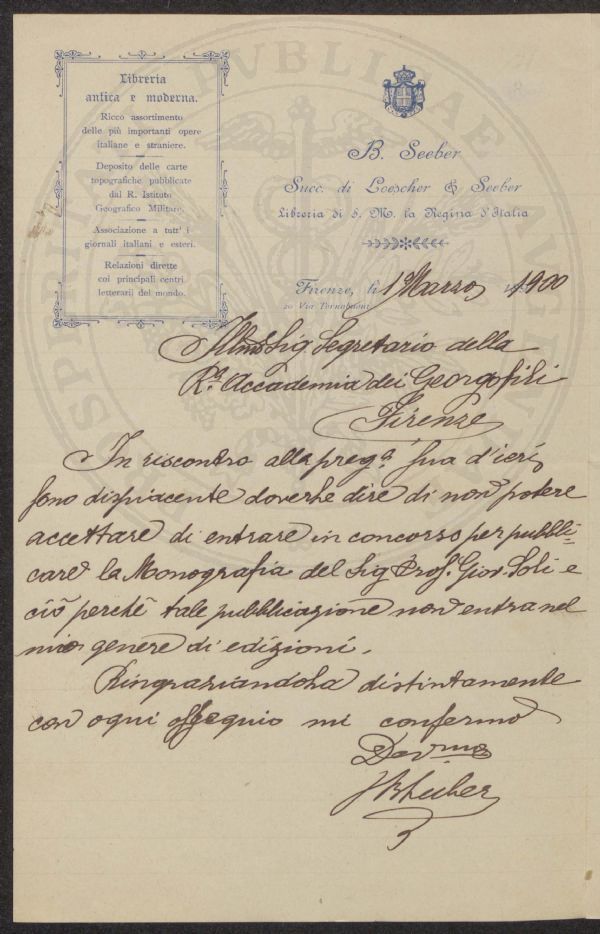 Libreria
antica e moderna.
Ricco assortimento
delle più importanti opere
italiane e straniere.
Deposito delle carte
topografiche pubblicate
dal R. Istituto
Geografico Militare.
Associazione a tutt' i
giornali italiani e esteri.
Relazioni dirette
coi principali centri
letterarii del mondo.
B. Seeber
Succ. di Loescher & Seeber
Libreria di S. M. la Regina d'Italia
Firenze, li 1 Marzo 1900
20 Via Tornabuoni
Illmo Sig. Segretario della
Rª. Accademia dei Georgofili
Firenze
In riscontro alla pregª. Sua d'ieri
sono dispiacente doverLe dire di non potere
accettare di entrare in concorso per pubbli=
care la Monografia del Sig. Prof. Giov. Soli e
ciò perchè tale pubblicazione non entra nel
mio genere di edizioni.
RingraziandoLa distintamente
con ogni ossequio mi confermo
Devmo
BSeeber